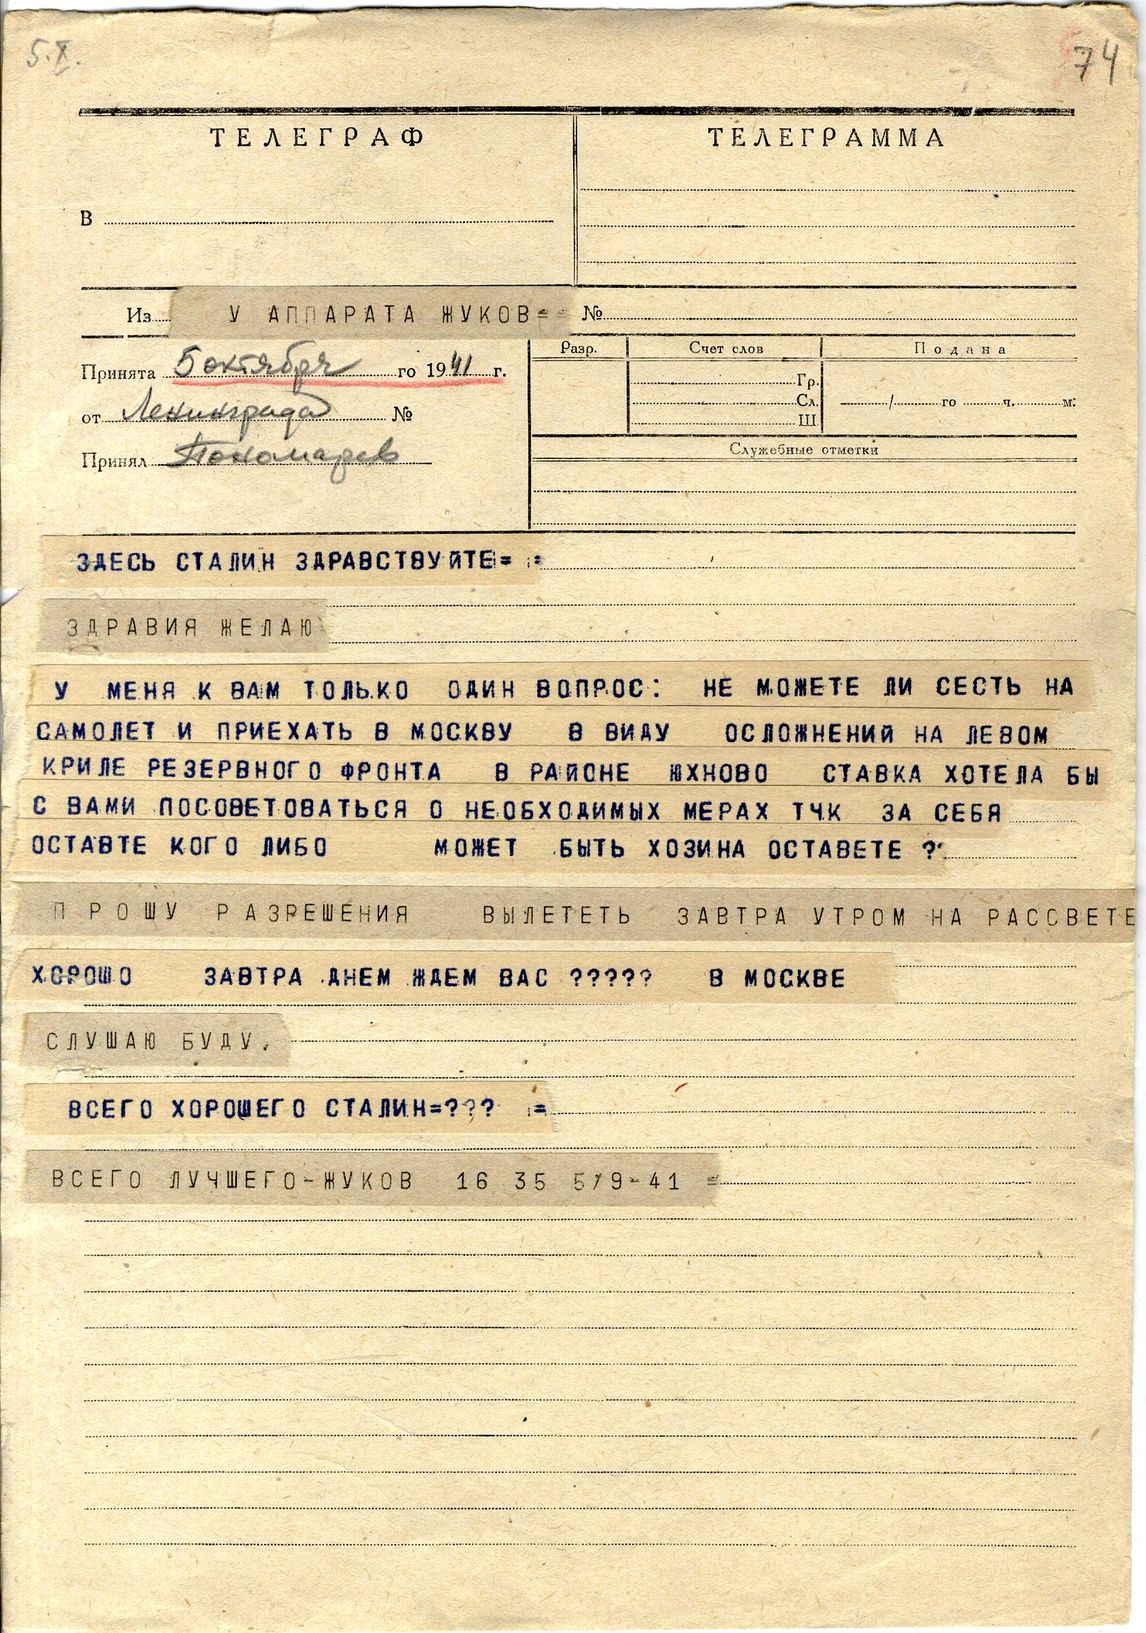 5.X.
74
ТЕЛЕГРАФ
ТЕЛЕГРАММА
В
Из У АППАРАТА ЖУКОВ= = №
Принята 5 октября го 1941 г.
от Ленинграда №
Принял Пономарев
Разр.
Счет слов
Подана
Гр.
Сл.
Ш
/ го ч. м.
Служебные отметки
ЗДЕСЬ СТАЛИН ЗДРАВСТВУЙТЕ= :=
ЗДРАВИЯ ЖЕЛАЮ
У МЕНЯ К ВАМ ТОЛЬКО ОДИН ВОПРОС: НЕ МОЖЕТЕ ЛИ СЕСТЬ НА
САМОЛЕТ И ПРИЕХАТЬ В МОСКВУ В ВИДУ ОСЛОЖНЕНИЙ НА ЛЕВОМ
КРИЛЕ РЕЗЕРВНОГО ФРОНТА В РАЙОНЕ ЮХНОВО СТАВКА ХОТЕЛА БЫ
С ВАМИ ПОСОВЕТОВАТЬСЯ О НЕОБХОДИМЫХ МЕРАХ ТЧК ЗА СЕБЯ
ОСТАВТЕ КОГО ЛИБО МОЖЕТ БЫТЬ ХОЗИНА ОСТАВЕТЕ ?
ПРОШУ РАЗРЕШЕНИЯ ВЫЛЕТЕТЬ ЗАВТРА УТРОМ НА РАССВЕТЕ
ХОРОШО ЗАВТРА ДНЕМ ЖДЕМ ВАС ????? В МОСКВЕ
СЛУШАЮ БУДУ.
ВСЕГО ХОРОШЕГО СТАЛИН=??? :=
ВСЕГО ЛУЧШЕГО-ЖУКОВ 16 35 5/9-41 =